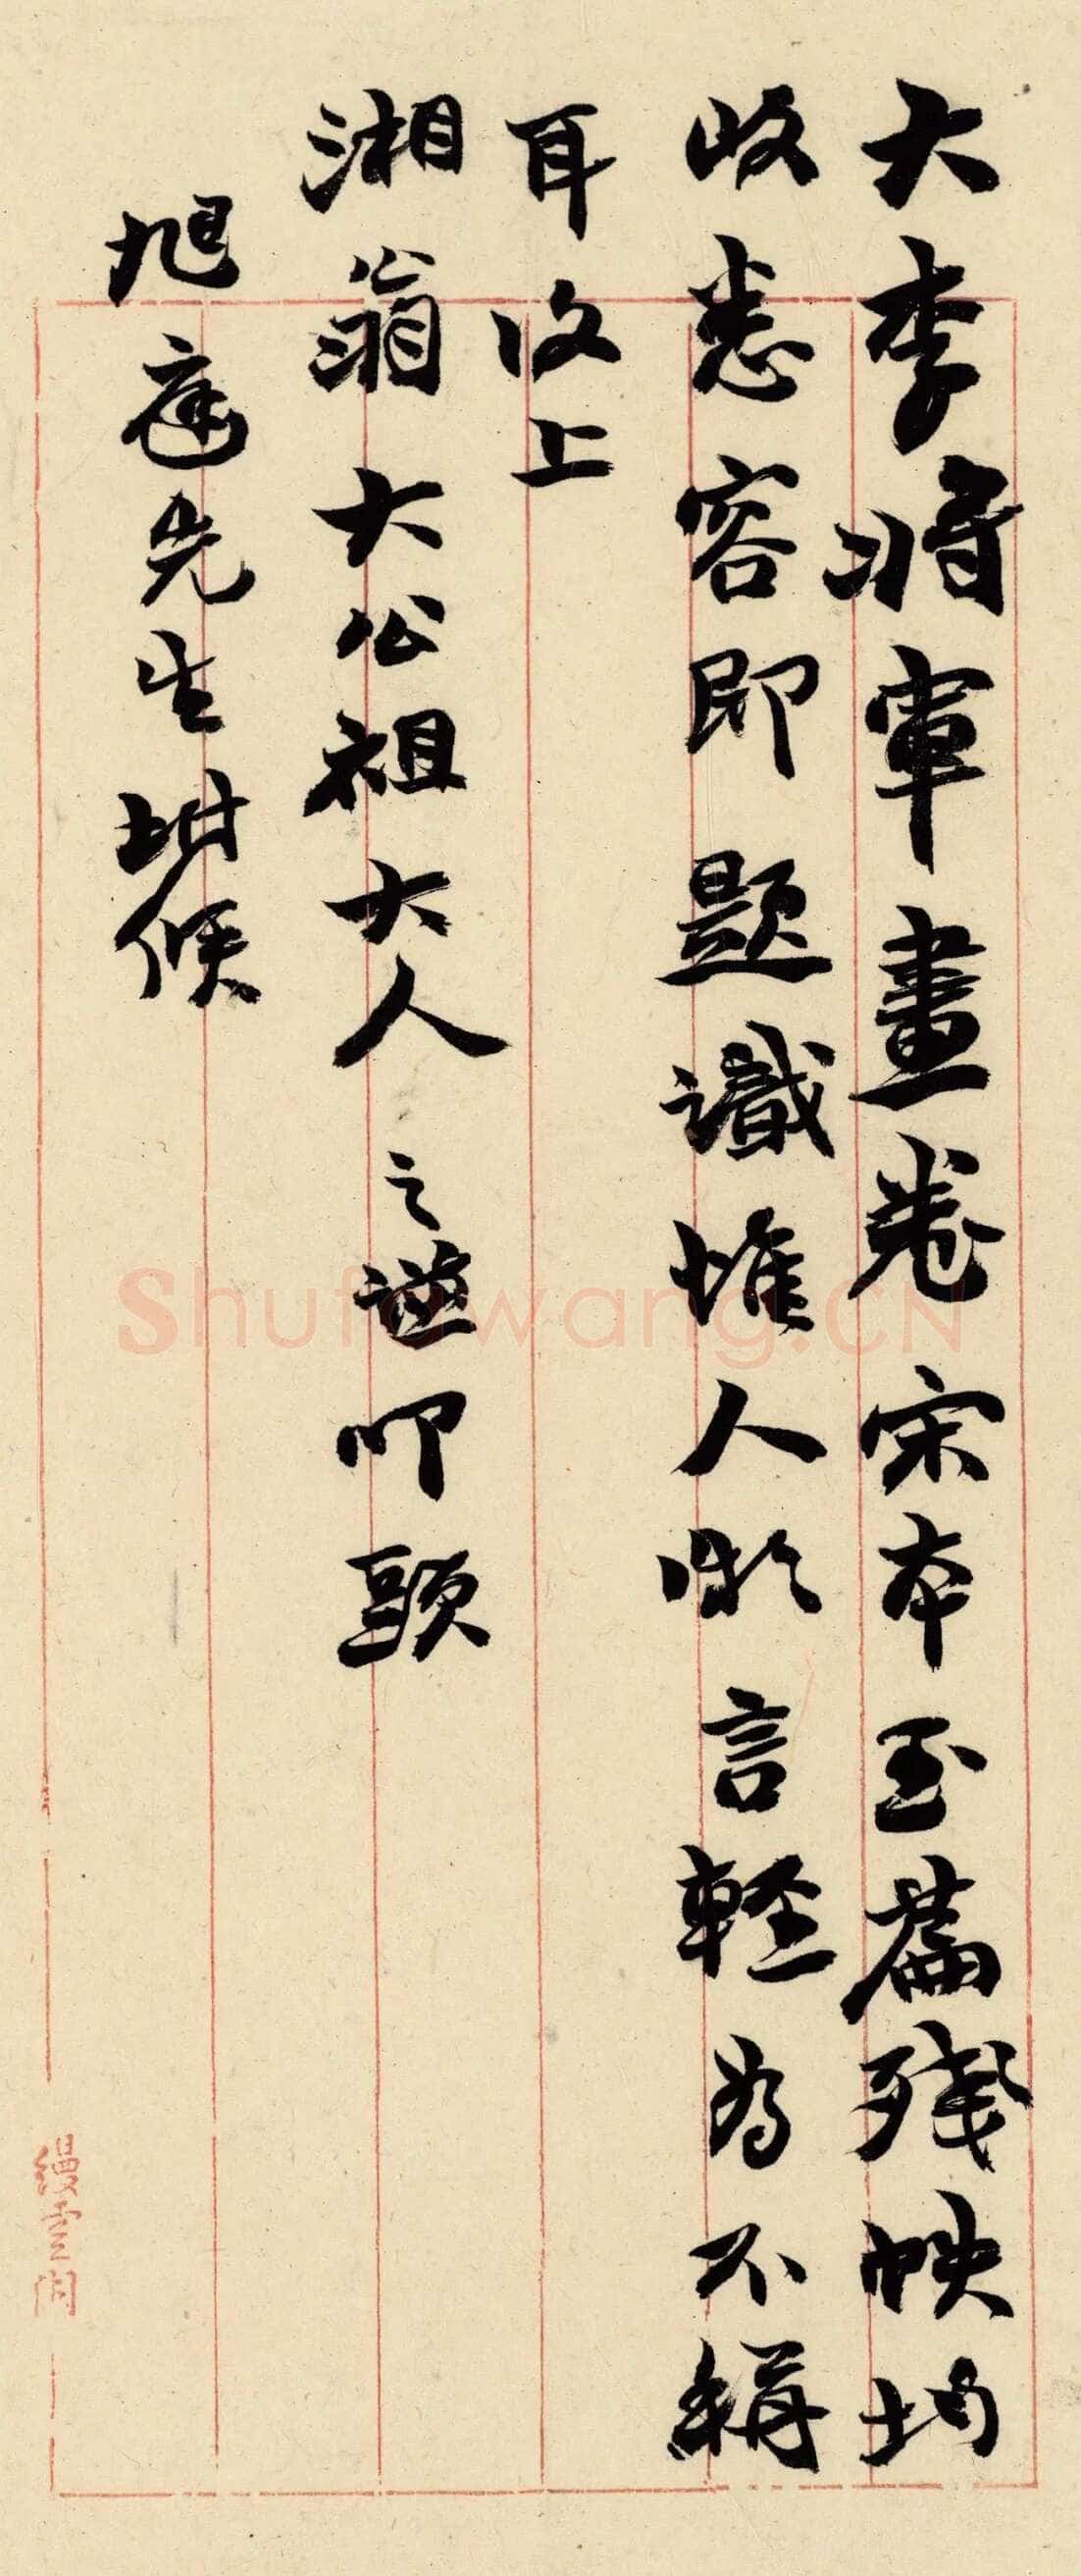 大李将軍畫卷宋本至篇殘帙均
收悉容即題識惟人微言輕為不稱
耳復上
湘翁大公祖大人 之謙叩頭
旭庭先生坿候
縵雲閣
Shufawang.CN